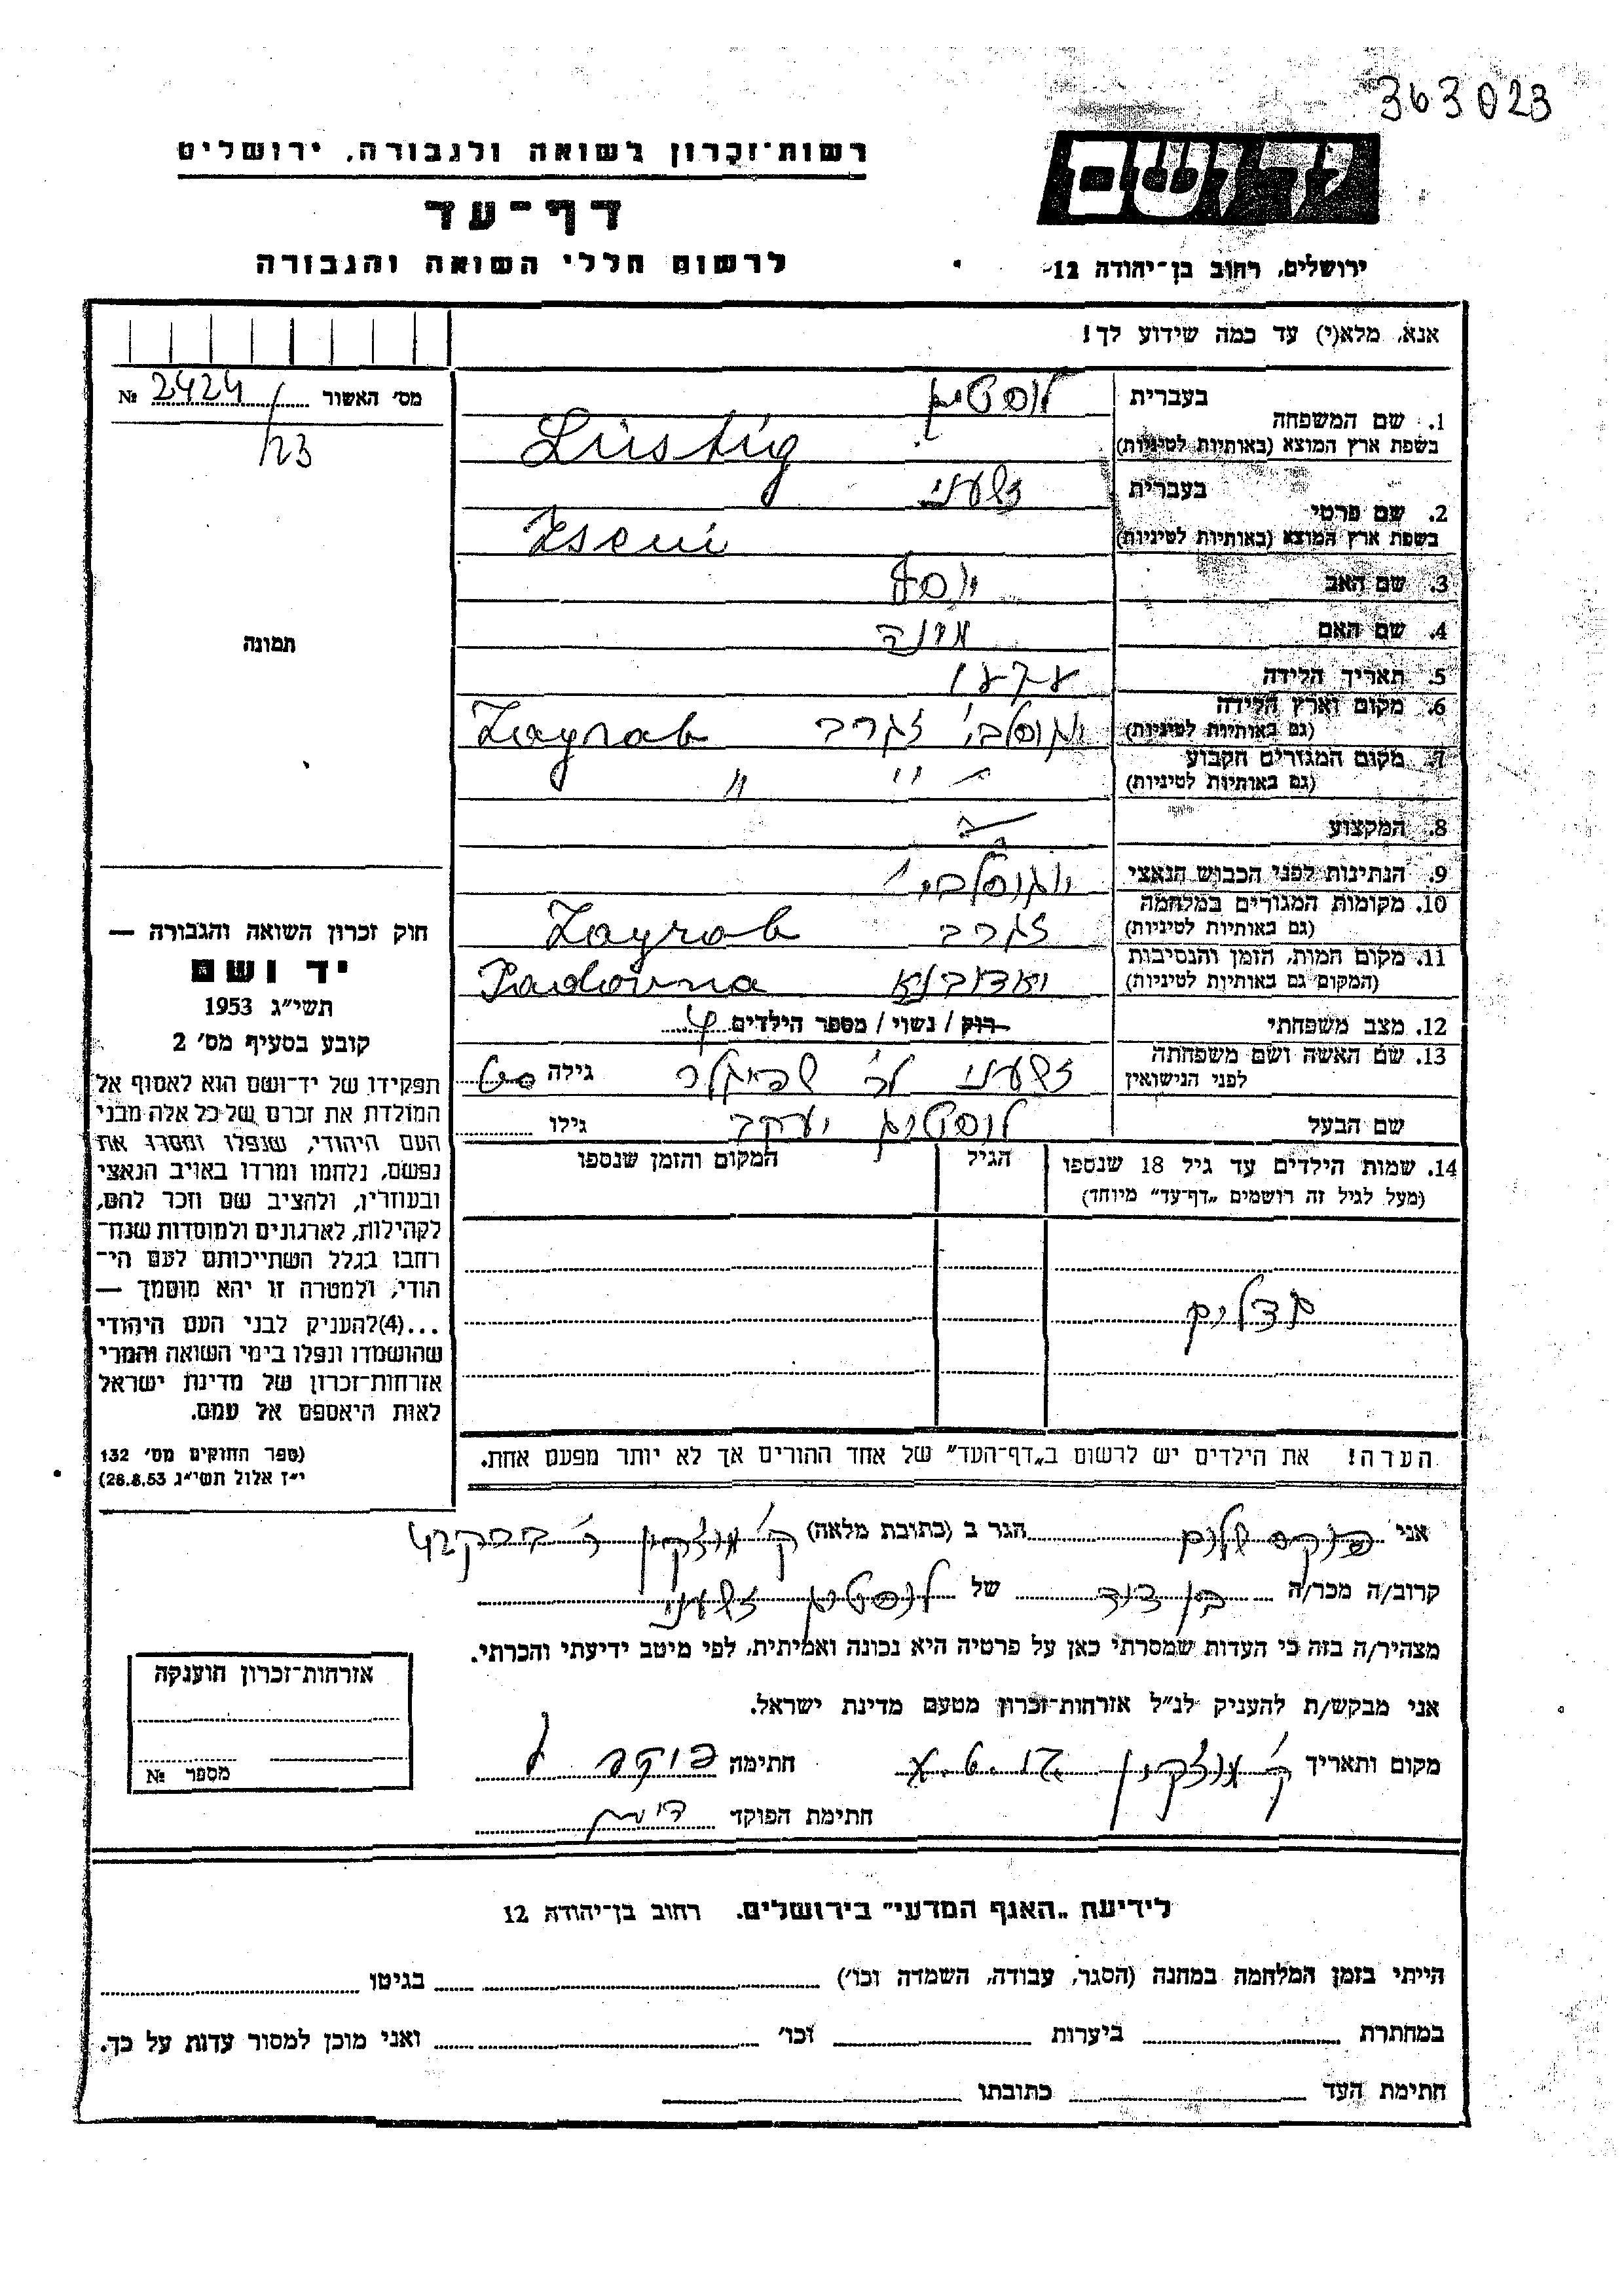 363023
רשות־זכרון לשואה ולגבורה, ירושלים
ידושם
דף־עד
לרשום חללי השואה והגבורה
ירושלים, רחוב בן־יהודה 12
אנא, מלא(י) עד כמה שידוע לך!
מס׳ האשור 2424 №
/23
בעברית לוסטיג
1. שם המשפחה
בשפת ארץ המוצא (באותיות לטיניות) Lustig
בעברית
2. שם פרטי
בשפת ארץ המוצא (באותיות לטיניות)
3. שם האב יוסף
4. שם האם
5. תאריך הלידה
6. מקום וארץ הלידה יוגוסלבי׳ זגרב Zagrab
(גם באותיות לטיניות)
7. מקום המגורים הקבוע ״ ״
(גם באותיות לטיניות)
8. המקצוע
9. הנתינות לפני הכבוש הנאצי יוגוסלבי׳
10. מקומות המגורים במלחמה זגרב Zagrab
(גם באותיות לטיניות)
11. מקום המות, הזמן והנסיבות
(המקום גם באותיות לטיניות)
12. מצב משפחתי רוק / נשוי / מספר הילדים 4
13. שם האשה ושם משפחתה
לפני הנישואין גילה
שם הבעל לוסטיג יעקב גילו
14. שמות הילדים עד גיל 18 שנספו הגיל המקום והזמן שנספו
(מעל לגיל זה רושמים „דף־עד״ מיוחד)
הערה! את הילדים יש לרשום ב„דף־העד״ של אחד ההורים אך לא יותר מפעם אחת.
תמונה
חוק זכרון השואה והגבורה —
יד ושם
תשי״ג 1953
קובע בסעיף מס׳ 2
תפקידו של יד־ושם הוא לאסוף אל
המולדת את זכרם של כל אלה מבני
העם היהודי, שנפלו ומסרו את
נפשם, נלחמו ומרדו באויב הנאצי
ובעוזריו, ולהציב שם וזכר להם,
לקהילות, לארגונים ולמוסדות שנח־
רחבו בגלל השתייכותם לעם הי־
הודי, ולמטרה זו יהא מוסמך —
...(4)להעניק לבני העם היהודי
שהושמדו ונפלו בימי השואה והמרי
אזרחות־זכרון של מדינת ישראל
לאות היאספם אל עמם.
(ספר החוקים מס׳ 132
י״ז אלול תשי״ג 28.8.53)
אני הגר ב (כתובת מלאה) ק׳ מוצקין
קרוב/ה מכר/ה בן דוד של לוסטיג
מצהיר/ה בזה כי העדות שמסרתי כאן על פרטיה היא נכונה ואמיתית, לפי מיטב ידיעתי והכרתי.
אני מבקש/ת להעניק לנ״ל אזרחות־זכרון מטעם מדינת ישראל.
מקום ותאריך ק׳ מוצקין חתימה
חתימת הפוקד
אזרחות־זכרון הוענקה
מספר №
לידיעת „האגף המדעי״ בירושלים. רחוב בן־יהודה 12
הייתי בזמן המלחמה במחנה (הסגר, עבודה, השמדה וכו׳) בגיטו
במחתרת ביערות וכו׳ ואני מוכן למסור עדות על כך.
חתימת העד כתובתו